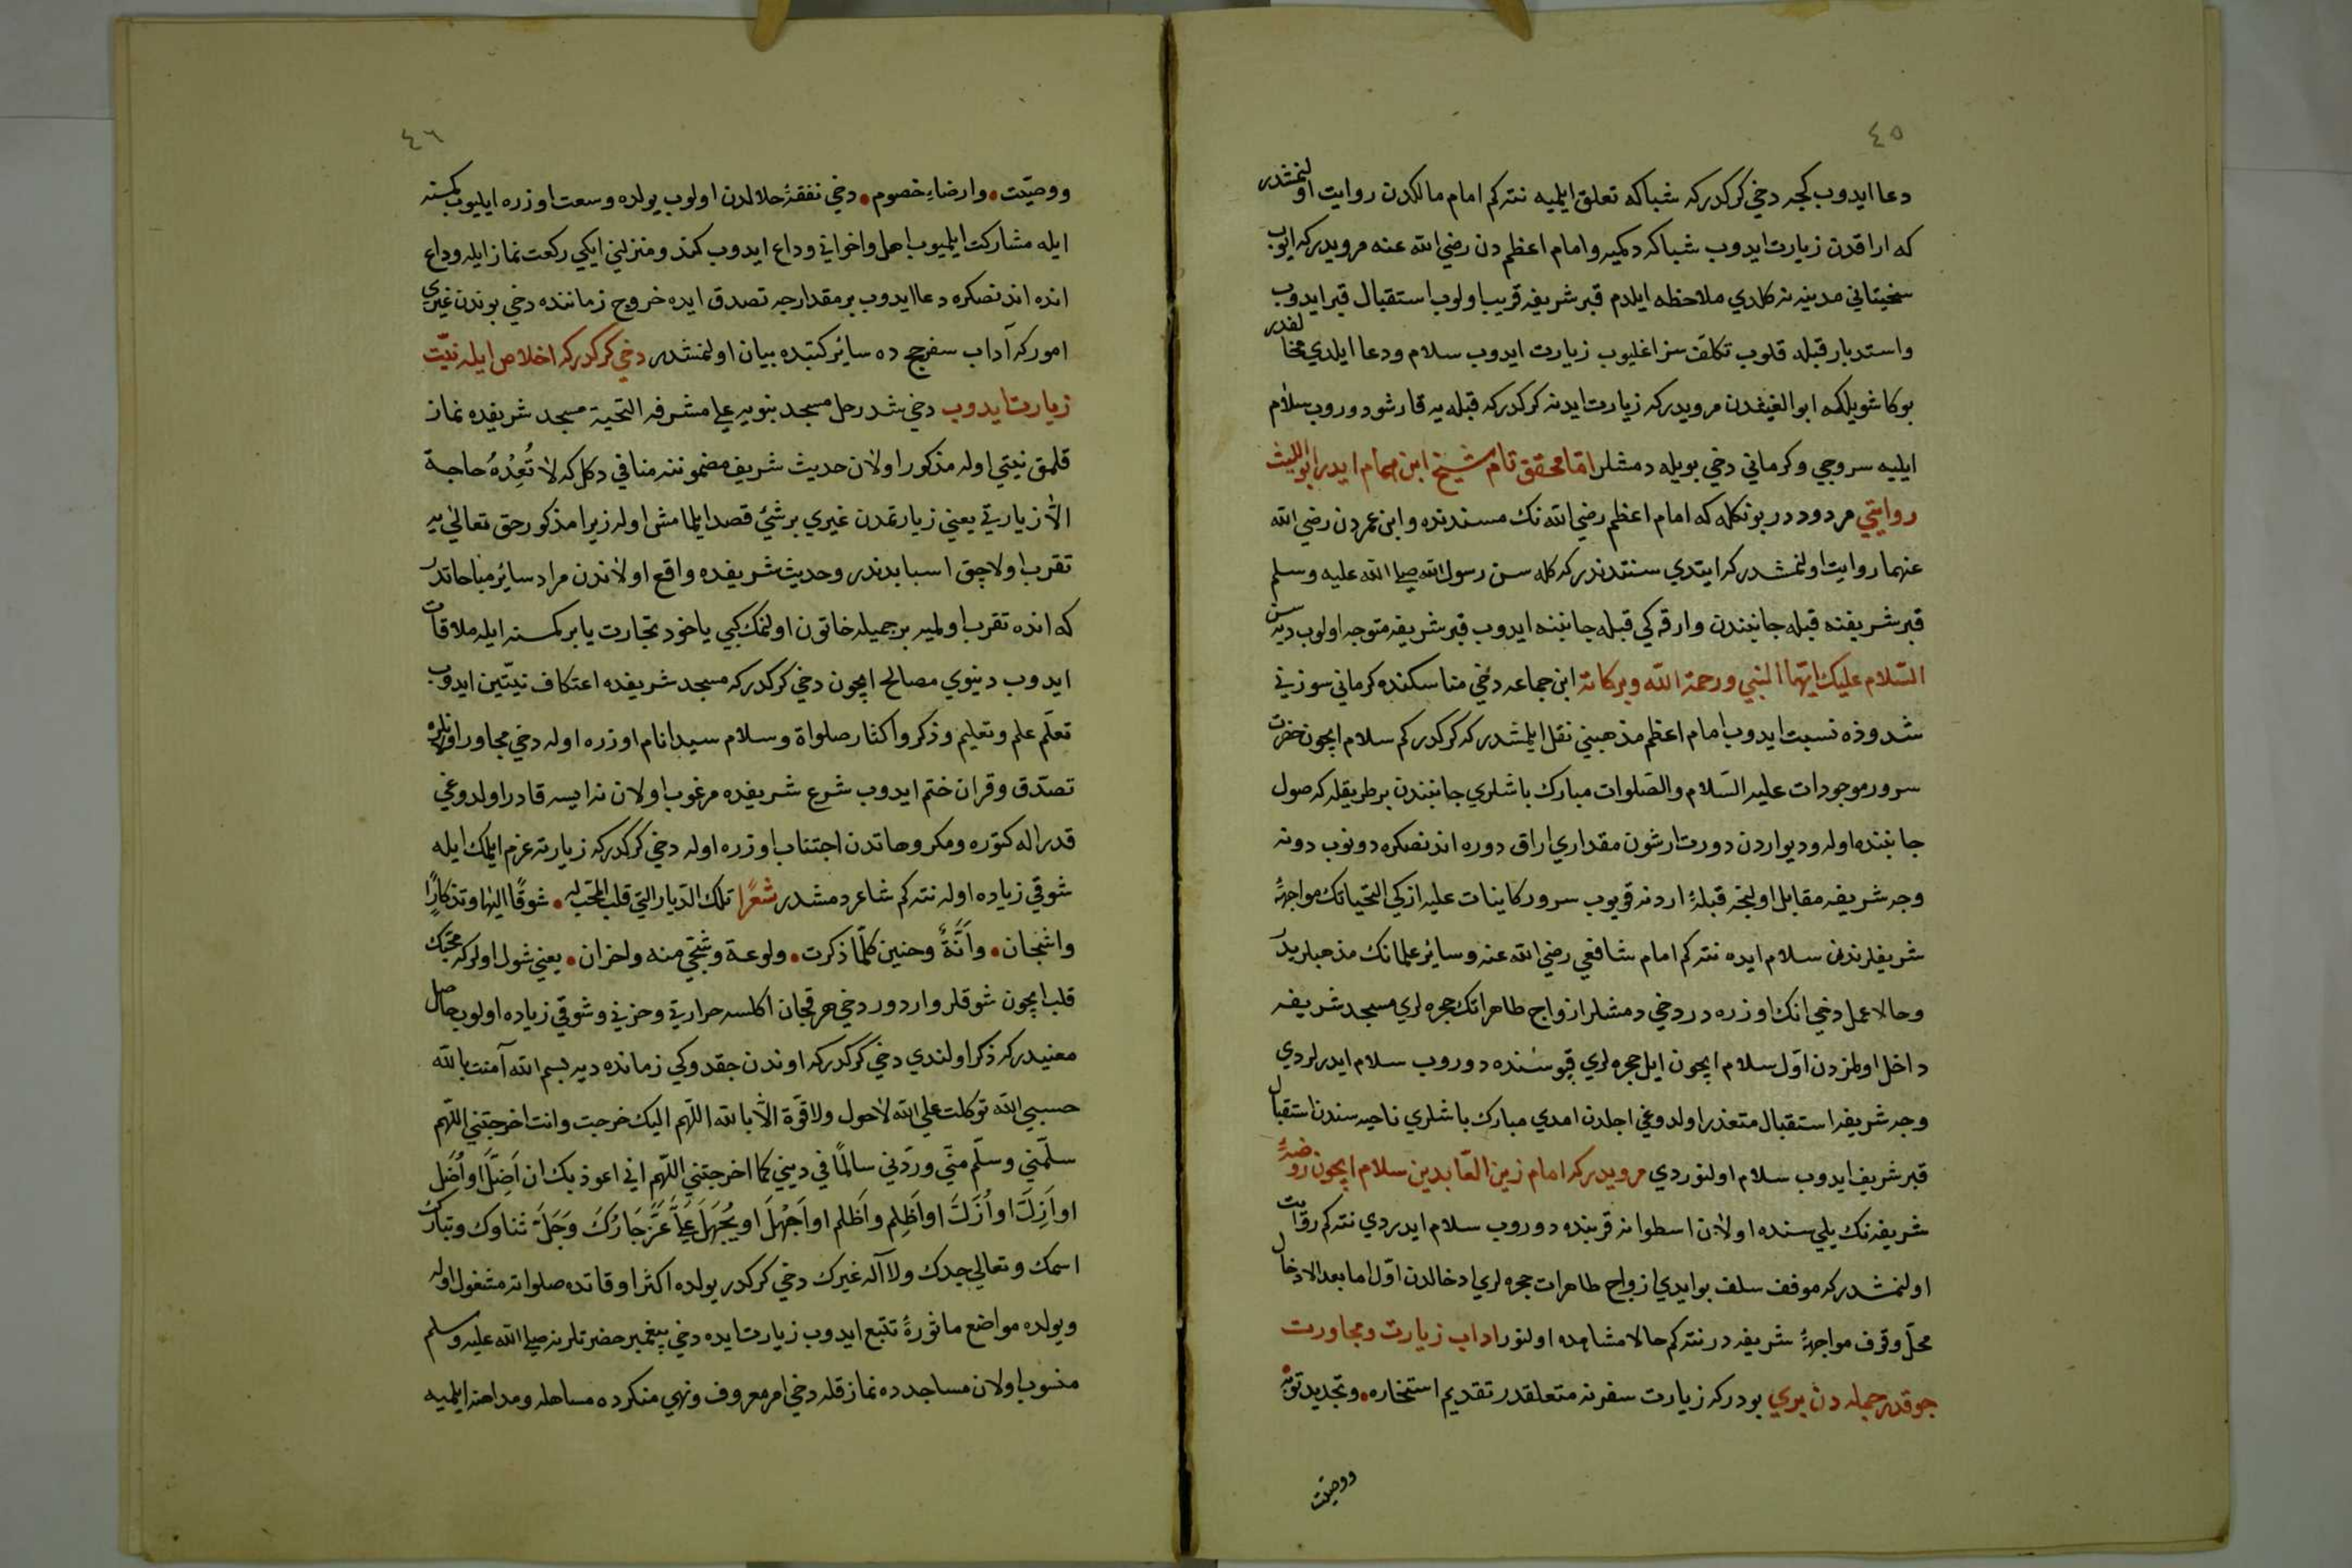 ٤٥
دعا ايدوب كجه دخي كركدركه شباكه تعلق ايلميه نته كم امام مالكدن روايت اولنمشدر
كه اراقدن زيارت ايدوب شباكه دكميه وامام اعظم دن رضي الله عنه مرويدركه ايوب
سختياني مدينه يه كلدي ملاحظه ايلدم قبر شريفه قريب اولوب استقبال قبر ايدوب
واستدبار قبله قلوب تكلف سز اغليوب زيارت ايدوب سلام ودعا ايلدي مخالفدر
بوكا شويلكه ابو الليثدن مرويدركه زيارت ايدنه كركدركه قبله يه قارشو دوروب سلام
ايليه سروجي وكرماني دخي بويله دمشلر اما محقق تام شيخ ابن همام ايدر ابو الليث
روايتي مردوددر بونكله كه امام اعظم رضي الله نك مسندنده وابن عمردن رضي الله
عنهما روايت اولنمشدركه ايتدي سنتدندركه كله سن رسول الله صلى الله عليه وسلم
قبر شريفنه قبله جانبندن وارقه كي قبله جانبنه ايدوب قبر شريفه متوجه اولوب ديه سن
السّلام عليك ايّها النبي ورحمة الله وبركاته ابن جماعه دخي مناسكنده كرماني سوزيني
شذوذه نسبت ايدوب امام اعظم مذهبيني نقل ايلمشدركه كركدركم سلام ايچون حضرت
سرور موجودات عليه السّلام والصّلوات مبارك باشلري جانبندن بر طريقله كه صول
جانبنده اوله وديواردن دورت ارشون مقداري اراق دوره اندنصكره دونوب دونه
وجه شريفه مقابل اولنجه قبله ٔ اردنه قويوب سرور كاينات عليه ازكي التحياتك مواجهۀ
شريفلرندن سلام ايده نته كم امام شافعي رضي الله عنه وسائر علمانك مذهبلريدر
وحالا عمل دخي انك اوزره در دخي دمشلر ازواج طاهراتك حجره لري مسجد شريفه
داخل اولمزدن اوّل سلام ايچون ايل حجره لري قپوسنده دوروب سلام ايدرلردي
وجه شريفه استقبال متعذر اولدوغي اجلدن امدي مبارك باشلري ناحيه سندن استقبال
قبر شريف ايدوب سلام اولنوردي مرويدركه امام زين العابدين سلام ايچون روضۀ
شريفه نك يلي سنده اولان اسطوانه قربنده دوروب سلام ايدردي نته كم روايت
اولنمشدركه موقف سلف بو ايدي ازواج طاهرات حجره لري ادخالدن اوّل اما بعد الادخال
محلّ وقوف مواجهۀ شريفه در نته كم حالا مشاهده اولنور اداب زيارت ومجاورت
جوقدر جمله دن بري بودركه زيارت سفرنه متعلقدر تقديم استخاره • وتجديد توبه
ووصيّت
٤٦
ووصيّت • وارضاءِ خصوم • دخي نفقۀ حلالدن اولوب يولده وسعت اوزره ايليوب كمسنه
ايله مشاركت ايلميوب اهل واخواني وداع ايدوب كندو منزليني ايكي ركعت نماز ايله وداع
ايده اندنصكره دعا ايدوب بر مقدارجه تصدق ايده خروج زماننده دخي بوندن غيري
اموركه آداب سفر حج ده سائر كتبده بيان اولنمشدر دخي كركدركه اخلاص ايله نيّت
زيارت ايدوب دخي شد رحل مسجد نبويه على مشرفه التحية مسجد شريفده نماز
قلمق نيتي اوله مذكور اولان حديث شريف مضموننه منافي دكل كه لا تُعِدُهُ حاجة
الاّ زيارتي يعني زيارتمدن غيري بر شئ قصد ايلمامش اوله زيرا مذكور حق تعالى يه
تقرب اولاجق اسبابدندر وحديث شريفده واقع اولاندن مراد سائر مباحاتدر
كه انده تقرب اولميه بر جميله خاتون اولنمك كبي ياخود تجارت يا بر كمسنه ايله ملاقات
ايدوب دنيوي مصالح ايچون دخي كركدركه مسجد شريفده اعتكاف نيّتين ايدوب
تعلّم علم وتعليم وذكر واكثار صلواة وسلام سيد انام اوزره اوله دخي مجاور اولانلره
تصدّق وقران ختم ايدوب شرع شريفده مرغوب اولان نه ايسه قادر اولدوغي
قدر اله كتوره ومكروهاتدن اجتناب اوزره اوله دخي كركدركه زيارته عزم ايلمك ايله
شوقي زياده اوله نته كم شاعر دمشدر شعرًا تلك الدّيار التي قلب المحبّ له • شوقًا اليها وتذكارًا
واشجان • وأنّةٌ وحنين كلّما ذكرت • ولوعة وشجي منه واحزان • يعني شول اولركه محبّك
قلب ايچون شوقلر واردور دخي هر قچان اكلسه حرارتي وحزني وشوقي زياده اولوب حاصل
معنيدركه ذكر اولندي دخي كركدركه اوندن چقدوكي زمانده ديه بسم الله آمنت بالله
حسبي الله توكلت على الله لا حول ولا قوّة الاّ بالله اللّهم اليك خرجت وانت اخرجتني اللّهم
سلّمني وسلّم منّي وردّني سالمًا في ديني كما اخرجتني اللّهم اني اعوذ بك ان اَضِلَّ او اُضَلّ
او اَزِلَّ او اُزَلَّ او اَظْلِم او اُظلم او اَجْهلَ او يُجْهَلَ عَلَيَّ عَزَّ جَارُكَ وَجَلَّ ثناوك وتبارك
اسمك وتعالي جدك ولا اله غيرك دخي كركدر يولده اكثر اوقاتده صلواته مشغول اوله
ويولده مواضع ماثورۀ تتبع ايدوب زيارت ايده دخي پيغمبر حضرتلرينه صلى الله عليه وسلم
منسوب اولان مساجدده نماز قله دخي امر معروف ونهي منكرده مساهله ومداهنه ايلميه